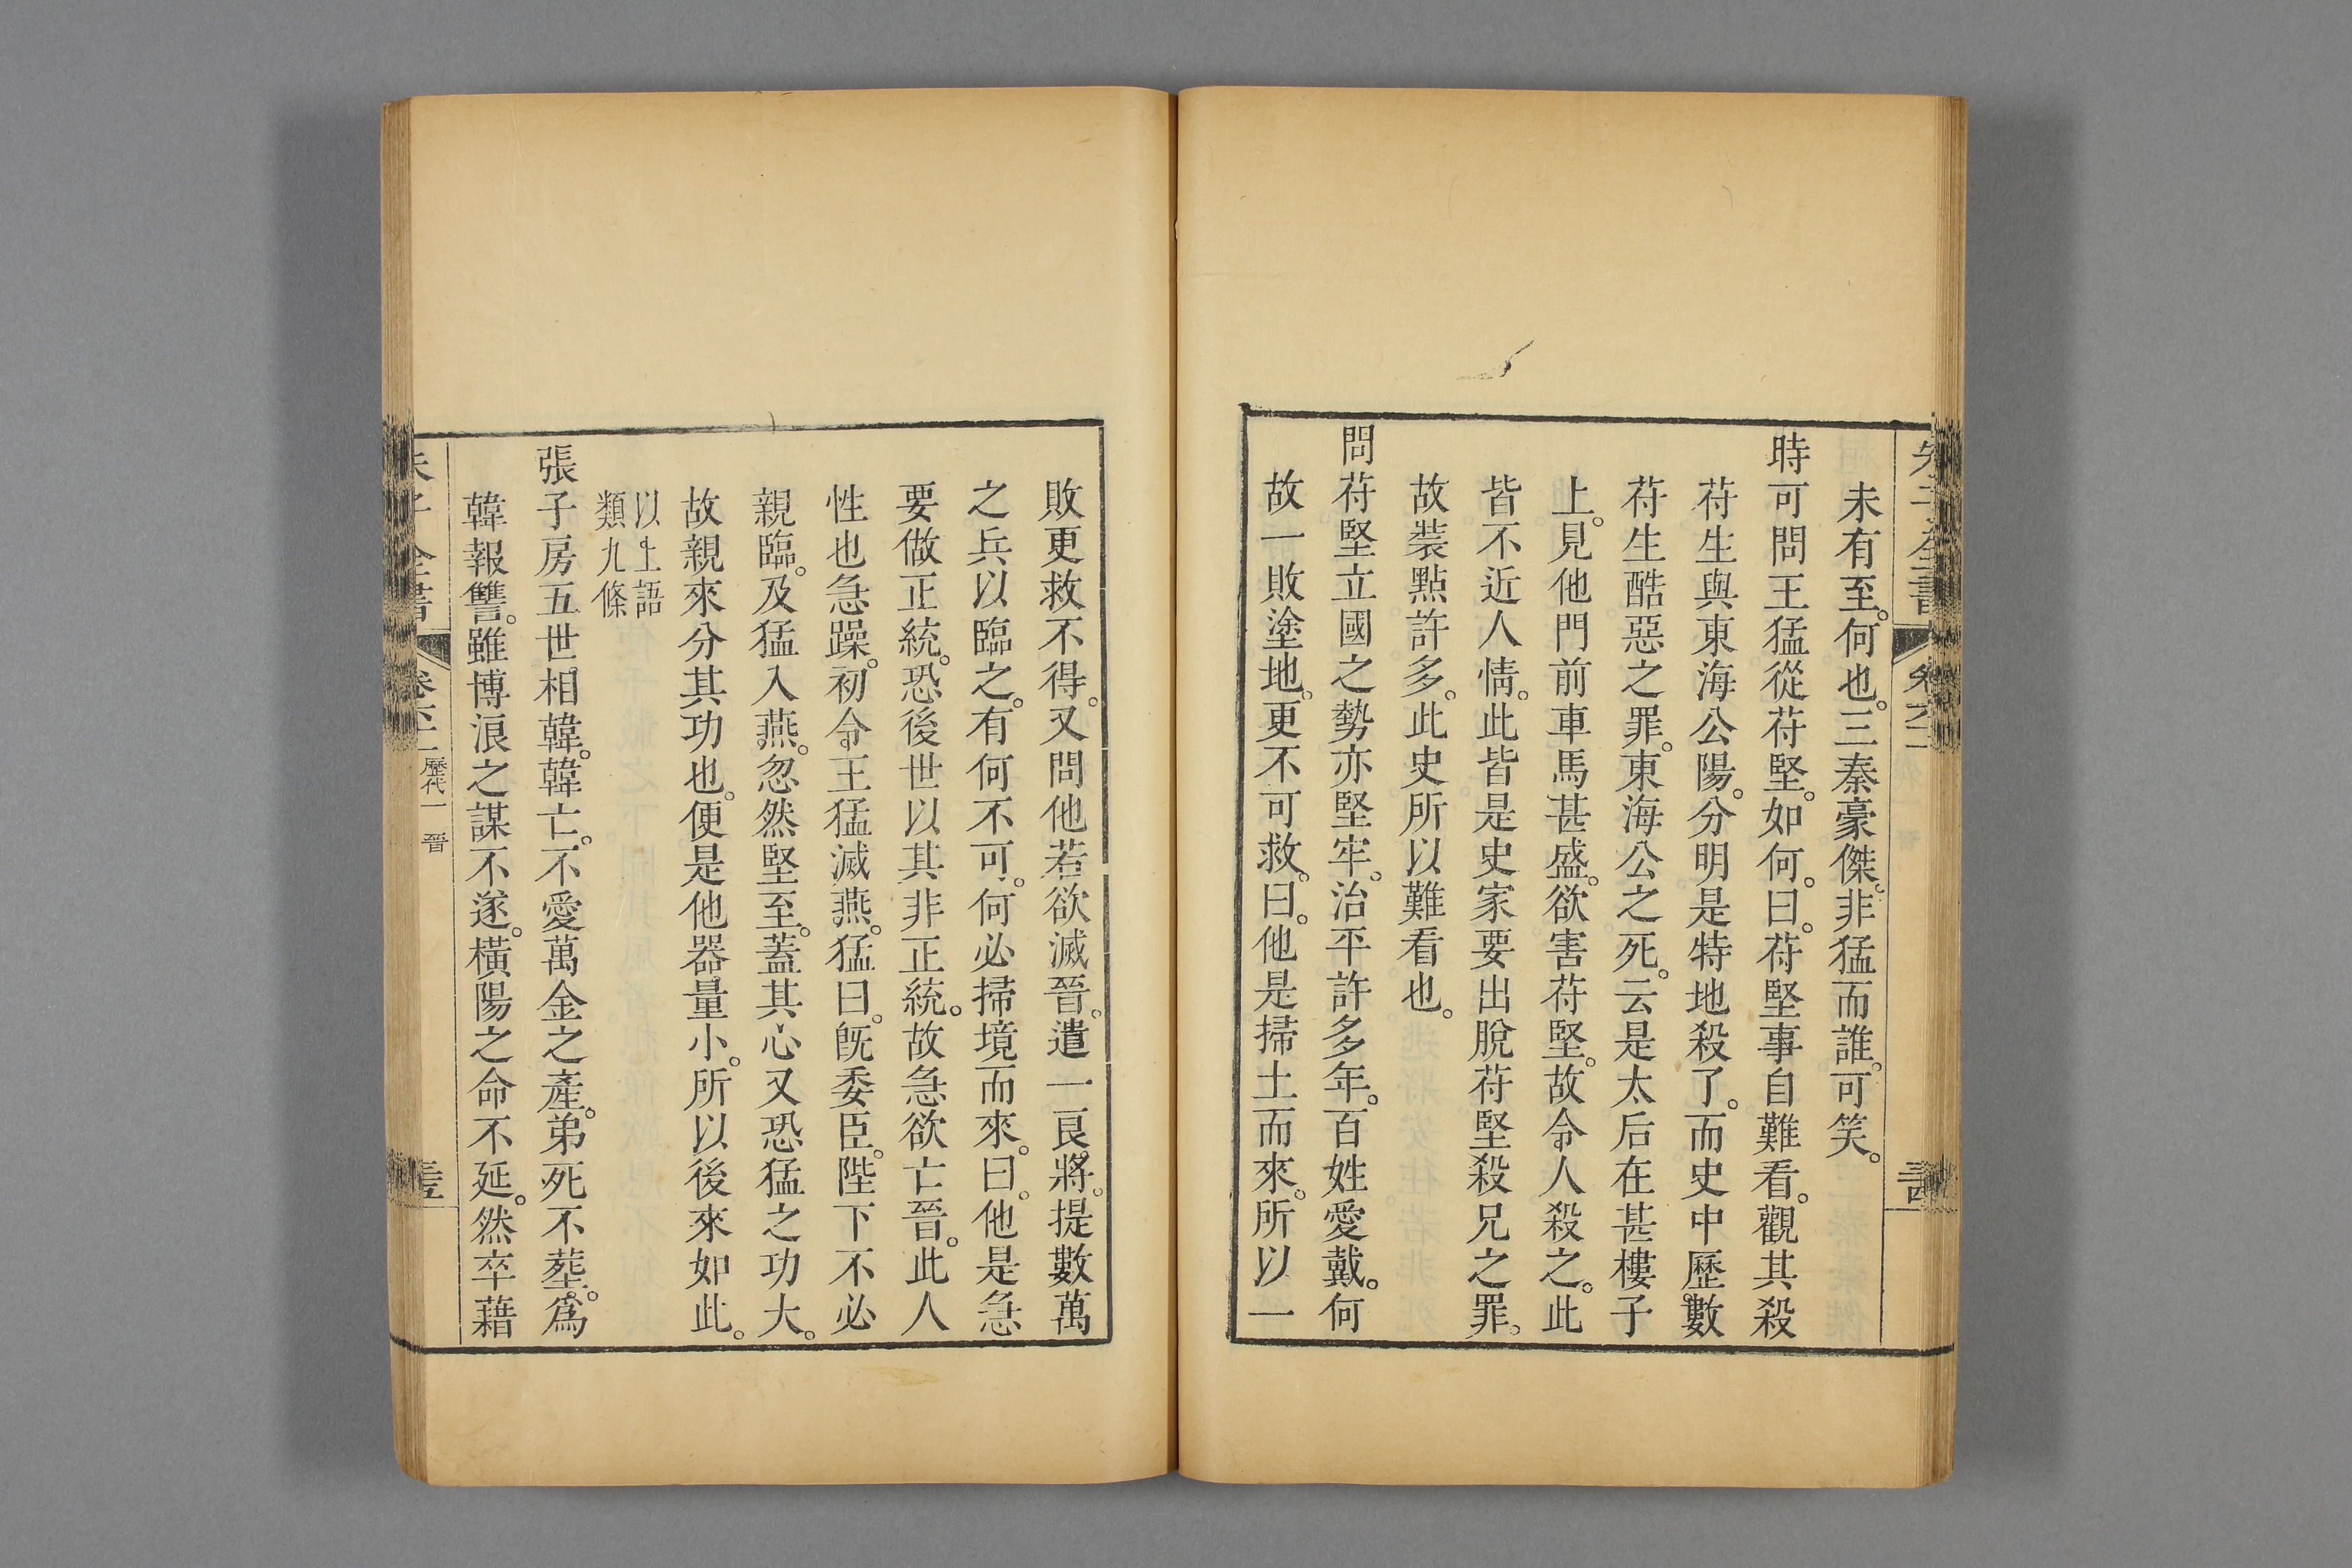 未有至。何也。三秦豪傑。非猛而誰。可笑。
時可問王猛從苻堅。如何。曰。苻堅事自難看。觀其殺
苻生與東海公陽。分明是特地殺了。而史中歷數
苻生酷惡之罪。東海公之死。云是太后在甚樓子
上。見他門前車馬甚盛。欲害苻堅。故令人殺之。此
皆不近人情。此皆是史家要出脫苻堅殺兄之罪。
故裝點許多。此史所以難看也。
問苻堅立國之勢亦堅牢。治平許多年。百姓愛戴。何
故一敗塗地。更不可救。曰。他是掃土而來。所以一
敗更救不得。又問他若欲滅晉。遣一良將。提數萬
之兵以臨之。有何不可。何必掃境而來。曰。他是急
要做正統。恐後世以其非正統。故急欲亡晉。此人
性也急躁。初令王猛滅燕。猛曰。旣委臣。陛下不必
親臨。及猛入燕。忽然堅至。蓋其心又恐猛之功大。
故親來分其功也。便是他器量小。所以後來如此。
以上語
類九條
張子房五世相韓。韓亡。不愛萬金之產。弟死不塟。爲
韓報讐。雖博浪之謀不遂。橫陽之命不延。然卒藉
歷代一 晉